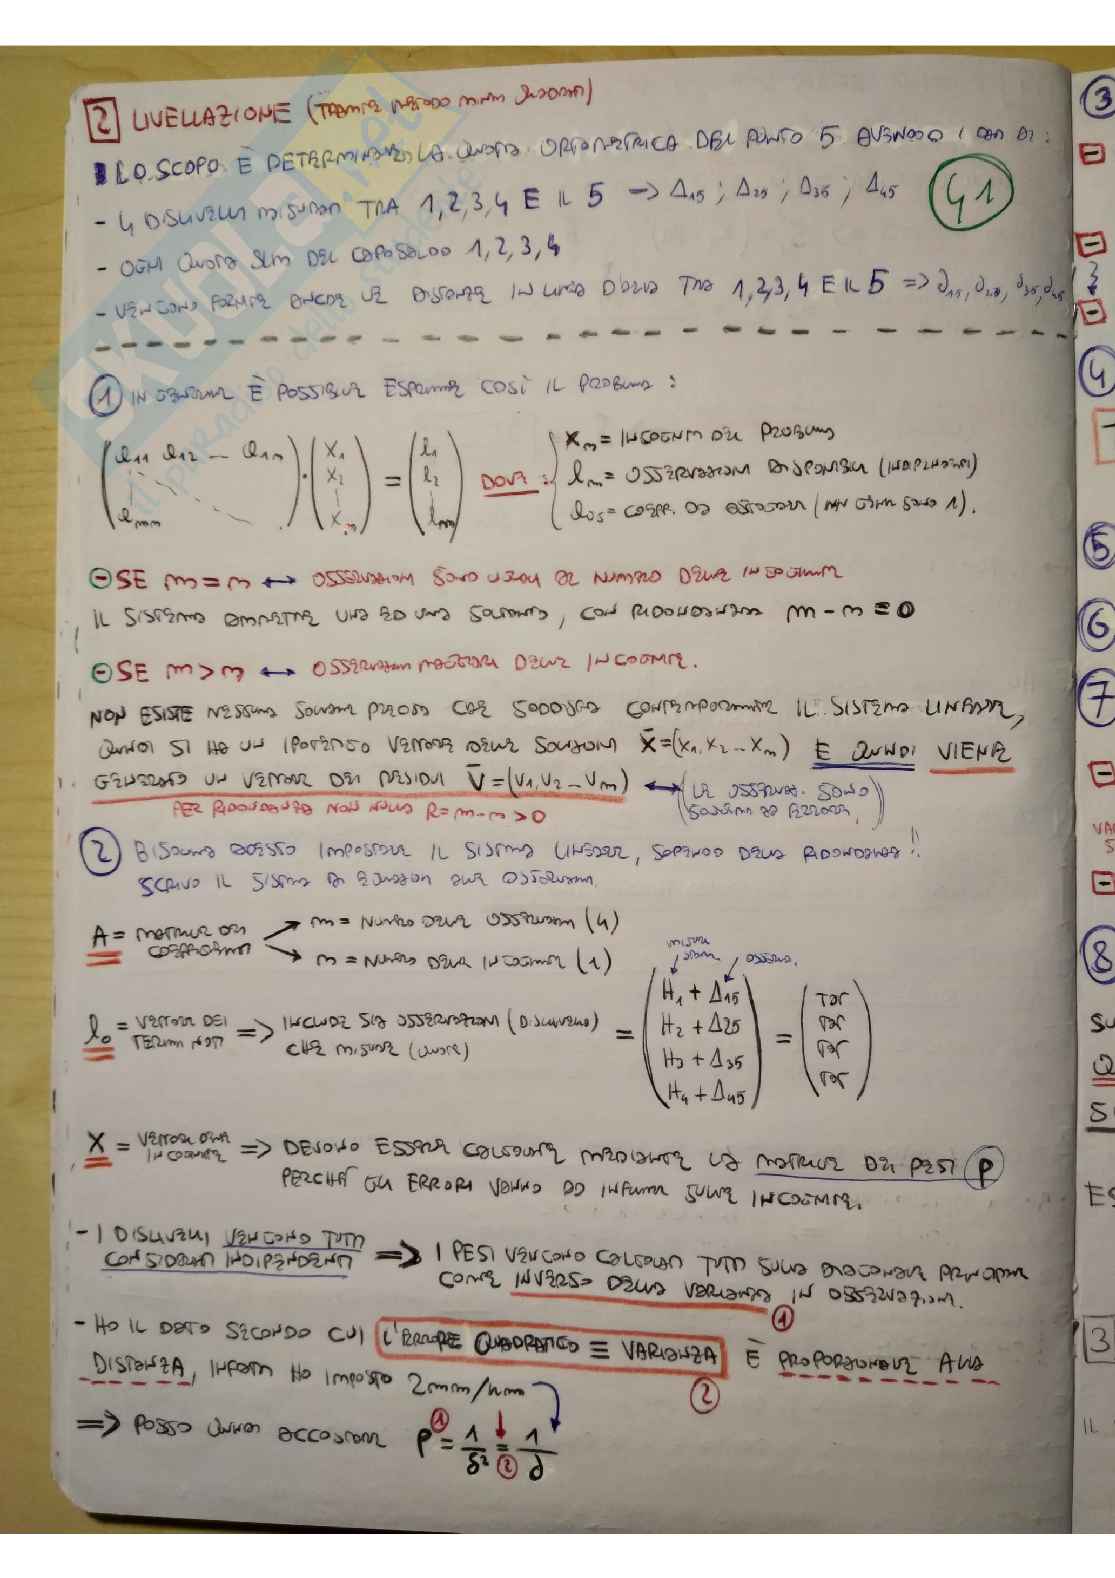 2 LIVELLAZIONE (TRAMITE METODO MINIMI QUADRATI)
LO SCOPO È DETERMINARE LA QUOTA ORTOMETRICA DEL PUNTO 5 AVENDO I DATI DI:
- 4 DISLIVELLI MISURATI TRA 1,2,3,4 E IL 5 → Δ15 ; Δ25 ; Δ35 ; Δ45
41
- OGNI QUOTA SLM DEL CAPOSALDO 1,2,3,4
- VENGONO FORNITE ANCHE LE DISTANZE IN LINEA D'ARIA TRA 1,2,3,4 E IL 5 => d15, d25, d35, d45
1 IN GENERALE È POSSIBILE ESPRIMERE COSÌ IL PROBLEMA :
(a11 a12 -- a1n amn) · (x1 x2 xn) = (l1 l2 lm) DOVE :
xn = INCOGNITE DEL PROBLEMA
lm = OSSERVAZIONI DISPONIBILI (INDIPENDENTI)
SE m = n ↔ OSSERVAZIONI SONO UGUALI AL NUMERO DELLE INCOGNITE
IL SISTEMA AMMETTE UNA ED UNA SOLUZIONE, CON RIDONDANZA m - n = 0
SE m > n ↔ OSSERVAZIONI MAGGIORI DELLE INCOGNITE.
NON ESISTE NESSUNA SOLUZIONE PRECISA CHE SODDISFA CONTEMPORANEAMENTE IL SISTEMA LINEARE,
QUINDI SI HA UN IPOTETICO VETTORE DELLE SOLUZIONI X̄=(x1, x2 -- xm) E QUINDI VIENE
GENERATO UN VETTORE DEI RESIDUI V̄=(v1, v2 -- vm) ↔ (LE OSSERVAZ. SONO
PER RIDONDANZA NON NULLA R = m-n > 0
SOGGETTE AD ERRORE)
2 BISOGNA ADESSO IMPOSTARE IL SISTEMA LINEARE, SAPENDO DELLA RIDONDANZA !!
SCRIVO IL SISTEMA DI EQUAZIONI ALLE OSSERVAZIONI.
A = MATRICE DEI COEFFICIENTI
m = NUMERO DELLE OSSERVAZIONI (4)
n = NUMERO DELLE INCOGNITE (1)
l0 = VETTORE DEI TERMINI NOTI => INCLUDE SIA OSSERVAZIONI (DISLIVELLO)
CHE MISURE (QUOTE)
= (H1 + Δ15 H2 + Δ25 H3 + Δ35 H4 + Δ45) = (TOT TOT TOT TOT)
X = VETTORE DELLE INCOGNITE => DEVONO ESSERE CALCOLATE MEDIANTE LA MATRICE DEI PESI P
PERCHÉ GLI ERRORI VANNO AD INFLUIRE SULLE INCOGNITE.
- I DISLIVELLI VENGONO TUTTI
CONSIDERATI INDIPENDENTI => I PESI VENGONO CALCOLATI TUTTI SULLA DIAGONALE PRINCIPALE
COME INVERSO DELLA VARIANZA IN OSSERVAZIONI.
1
- HO IL DATO SECONDO CUI L'ERRORE QUADRATICO ≡ VARIANZA È PROPORZIONALE ALLA
DISTANZA, INFATTI HO IMPOSTO 2mm/km
2
=> POSSO QUINDI ACCOSTARE P =1 1/δ² =2 1/d
3
4
5
6
7
8
3